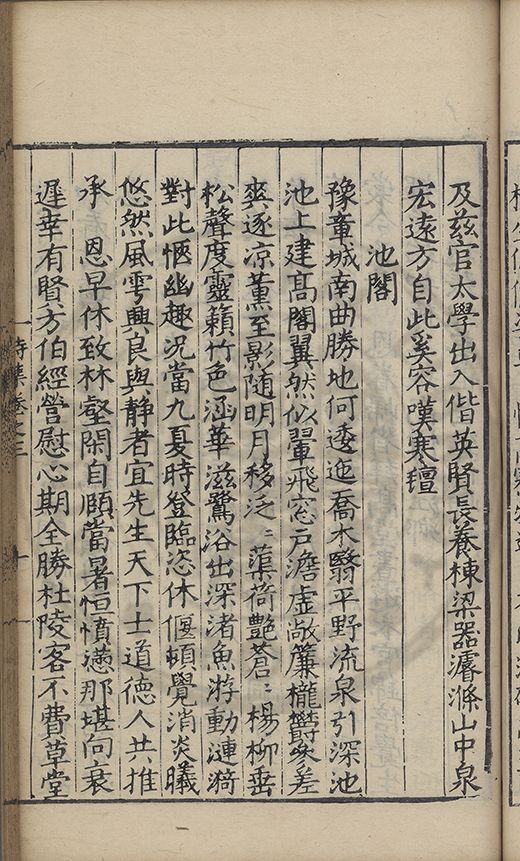 及茲官太學出入偕英賢長養棟梁器濬滌山中泉
宏遠方自此奚容嘆寒氊
池閣
豫章城南曲勝地何逶迤喬木翳平野流泉引深池
池上建高閣翼然似翬飛窓戶澹虛敞簾櫳欝參差
爽逐凉薰至影隨明月移泛〻蕖荷艷蒼〻楊柳垂
松聲度靈籟竹色涵華滋鷺浴出深渚魚游動漣漪
對此愜幽趣况當九夏時登臨恣休偃頓覺消炎曦
悠然風雩興良與靜者宜先生天下士道德人共推
承 恩早休致林壑閑自頤當暑恒憤懣那堪向衰
遲幸有賢方伯經營慰心期全勝杜陵客不費草堂
詩集卷之三
十